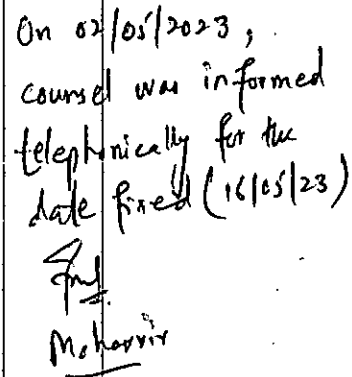 On 02/05/2023,
counsel was informed
telephonically for the
date fixed (16/05/23)
Moharrir